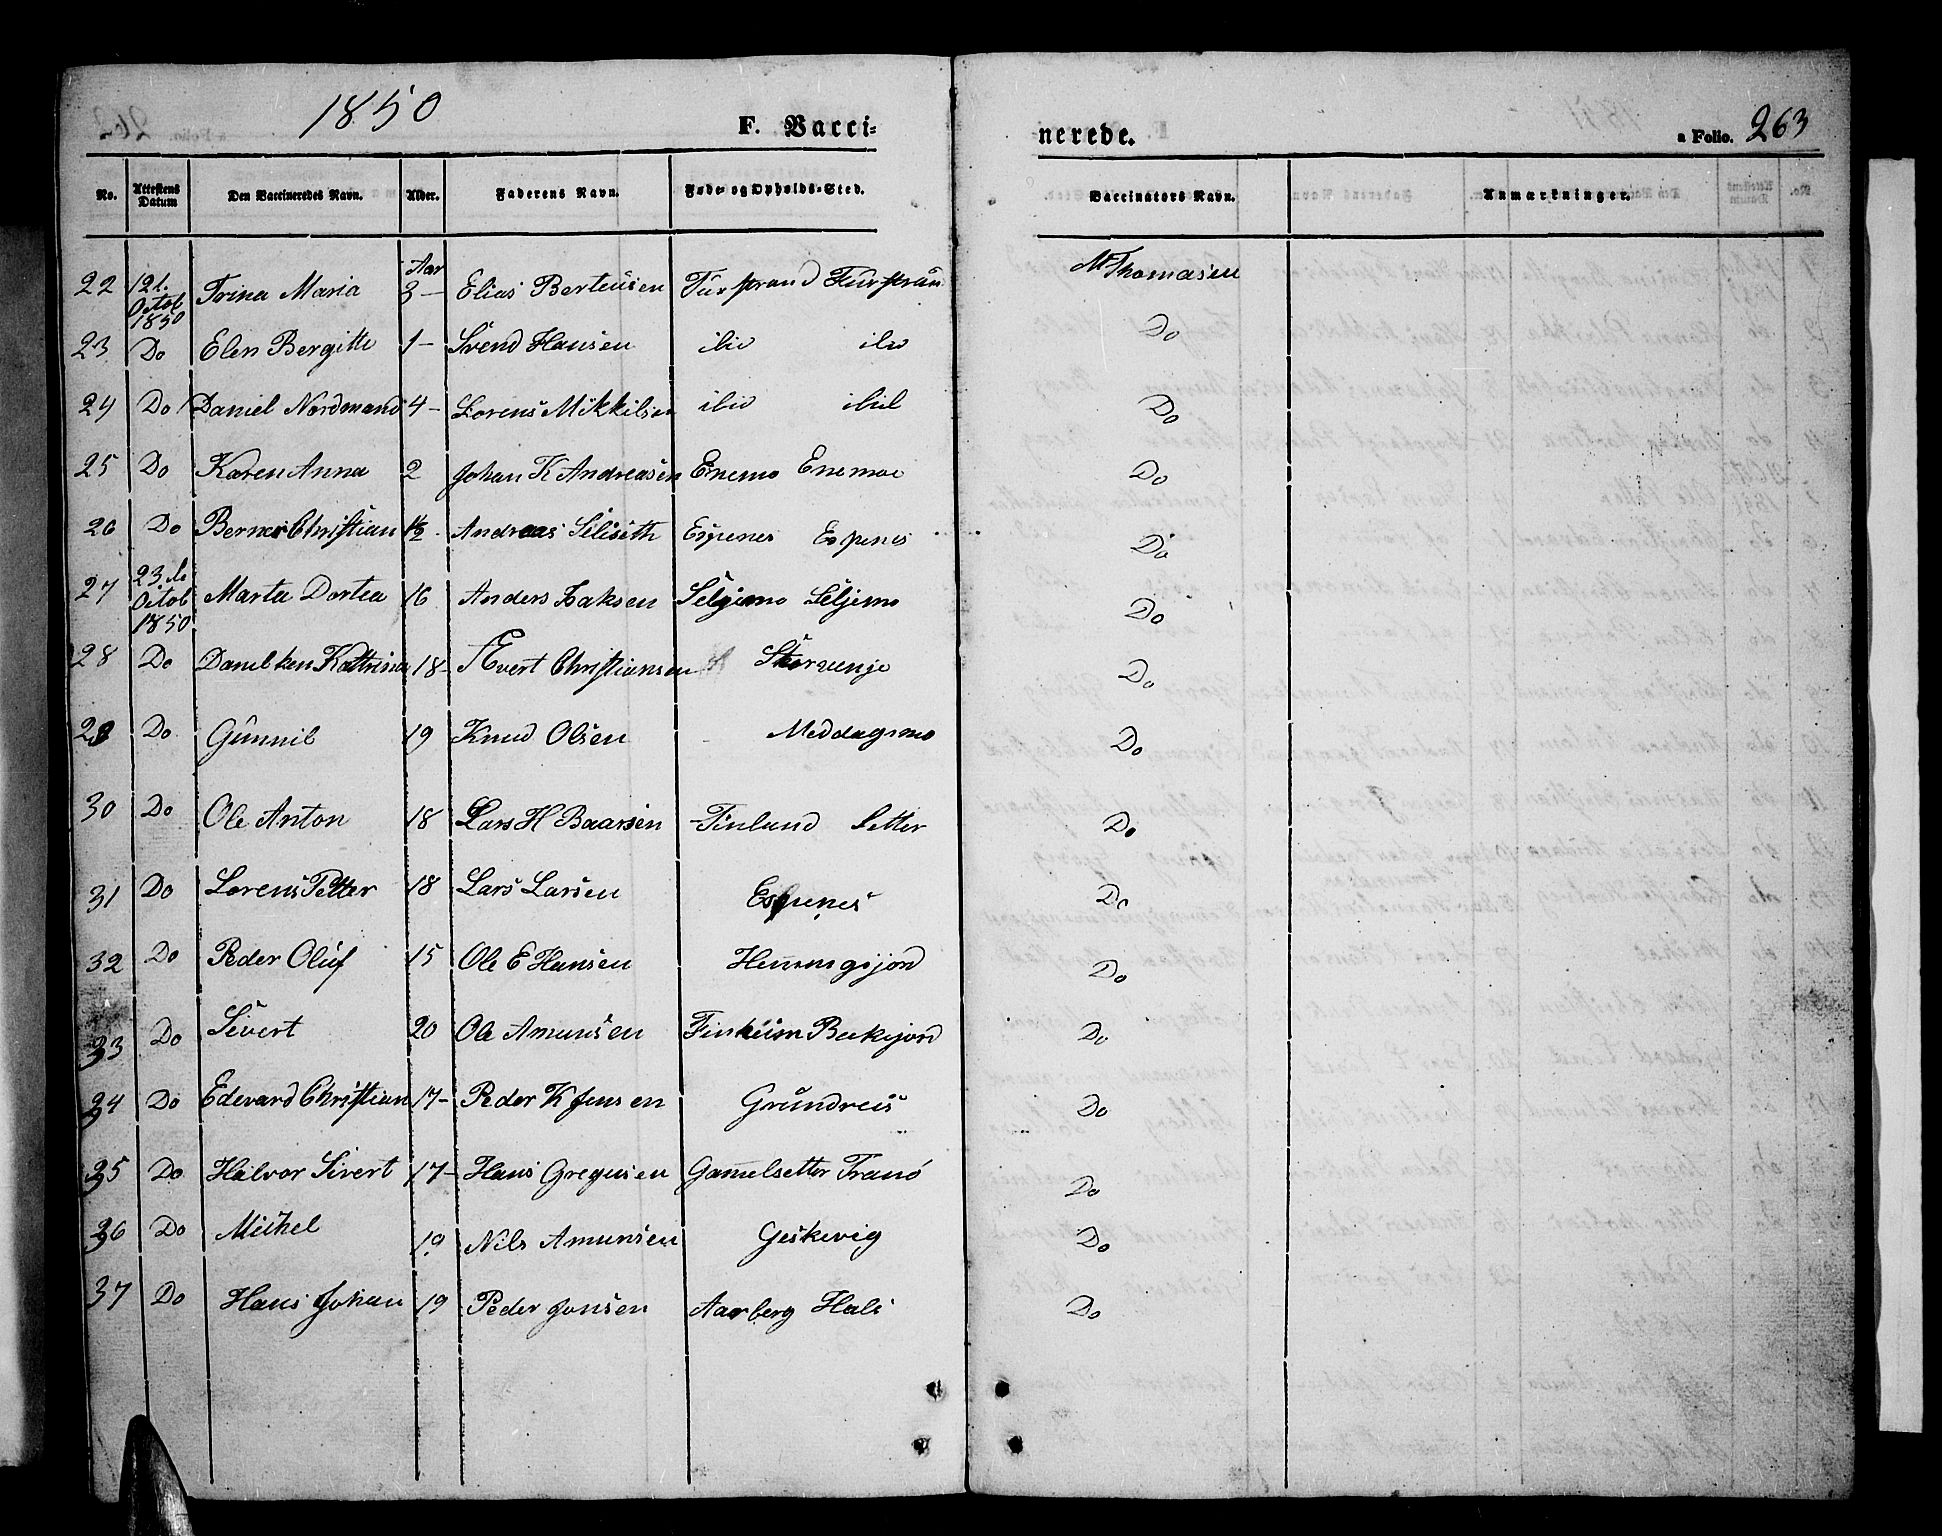 1850 F. Vacci= nerede. a Folio. 263
No. Attestens Datum Den Vaccineredes Navn. Alder. Faderens Navn. Føde- og Opholds-Sted. Vaccinators Navn. Anmærkninger.
22 12t. Octob 1850 Trina Maria Aar 3 — Elias Berteusen Fürstrand Fürstran M Thomasen
23 Do Elen Bergitte 1 — Svend Hansen ibid ibid Do
24 Do Daniel Nordmand 4 — Lorens Mikkilsen ibid ibid Do
25 Do Karen Anna 2 Johan K Andreasen Enemo Enemoe Do
26 Do Berner Christian 1½ Andreas Siliseth Espenes Espenes Do
27 23de Octob 1850 Marta Dortea 16 Anders Isaksen Seljemo Seljemo Do
28 Do Danilken Kattrina 18 - Evert Christiansen Storvenje Do
29 Do Gunnil 19 Knud Olsen Meddagsmo Do
30 Do Ole Anton 18 Lars H Baarsen Finland Setter Do
31 Do Lorens Petter 18 Lars Larsen Espenes Do
32 Do Peder Oluf 15 Ole E Hansen Hemmgsjord Do
33 Do Sivert 20 Ole Amunsen Beckejord Do
34 Do Edevard Christian 17 - Peder K Jensen Grundreis Do
35 Do Halvor Sivert 17 - Hans Gregusen Gamelsetter Tranö Do
36 Do Mikel 19 Nils Amunsen Geskevig Do
37 Do Hans Johan 19 Peder Jonsen Aarberg Hals Do